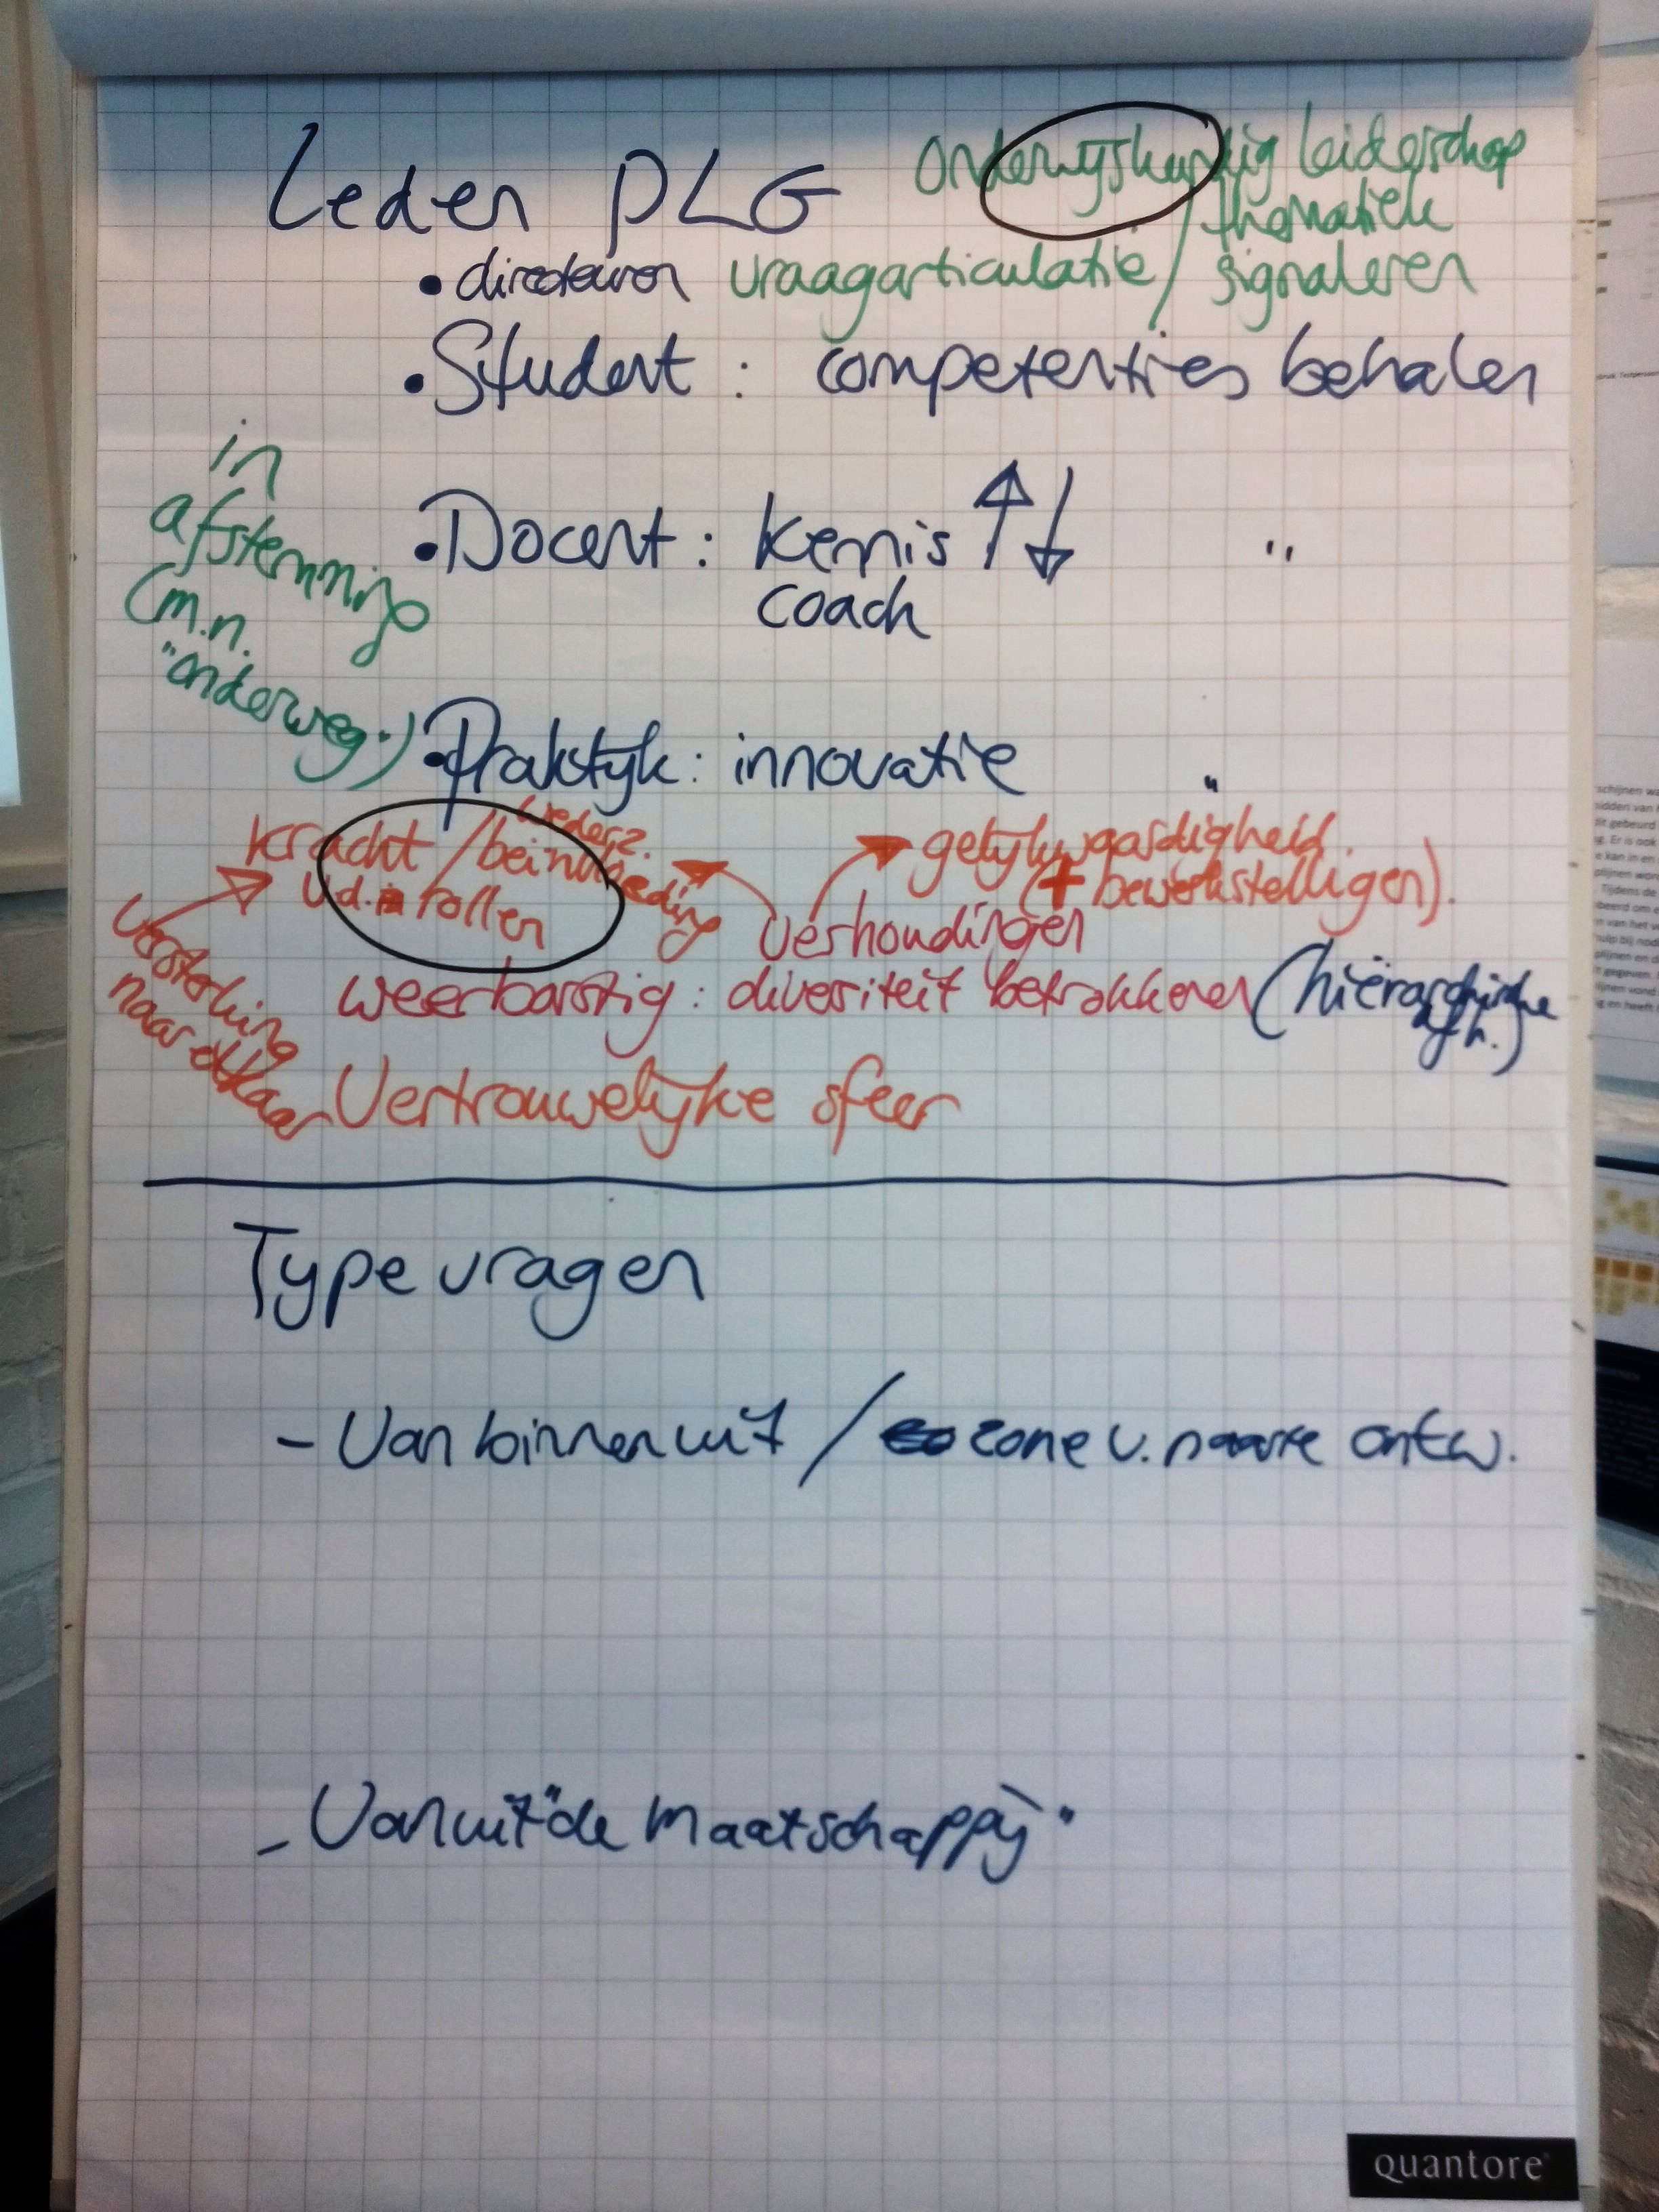 Leden PLG
Onderwijskundig leiderschap
thematiek
• directeuren vraagarticulatie / signaleren
• Student : competenties behalen
in
afstemming
(m.n.
"onderweg")
• Docent : kennis ↑↓ "
coach
• Praktijk : innovatie "
kracht / wederz.
beïnvloeding
v.d. rollen
gelijkwaardigheid
(+ bewerkstelligen).
verhoudingen
versterking
naar elkaar
weerbarstig : diversiteit betrokkenen (hiërarchische
afh.)
Vertrouwelijke sfeer
Type vragen
- Van binnenuit / zone v. naaste ontw.
- Vanuit "de maatschappij"
quantore